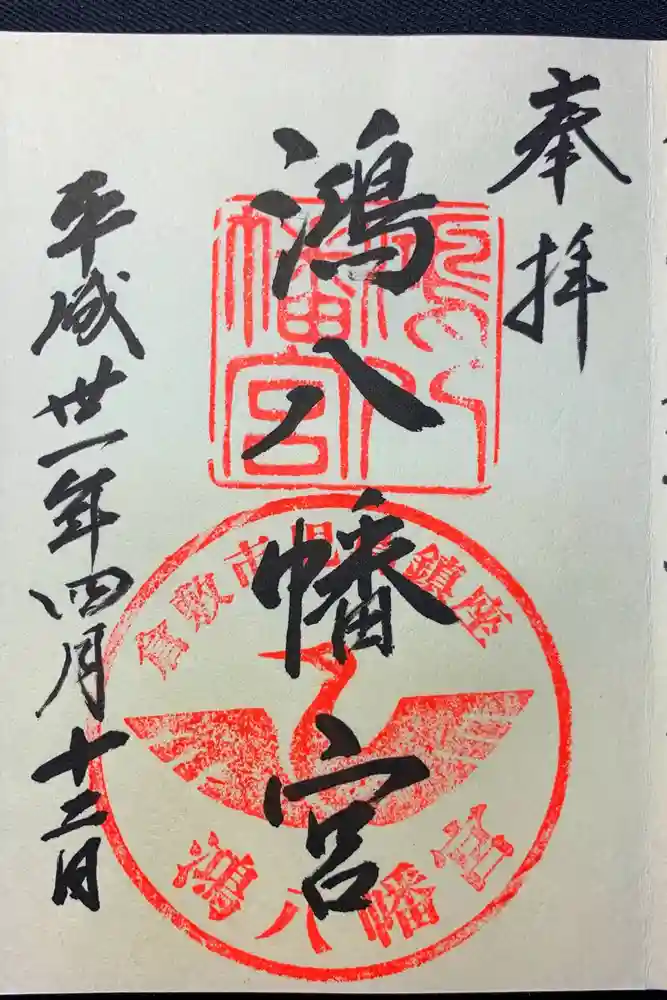 奉拝
鴻八幡宮
平成卅一年四月十二日
鴻八幡宮
倉敷市児島鎮座
鴻八幡宮